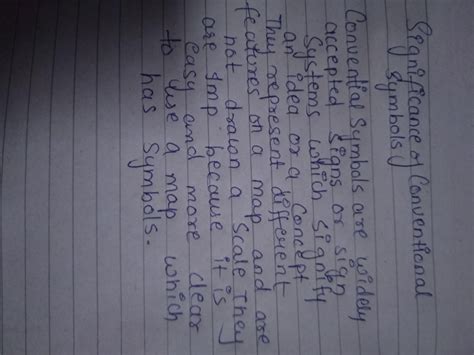 Significance of Conventional
Symbols
Convential Symbols are widely
accepted signs or sign
Systems which signify
an idea or a concept
They represent different
features on a map and are
not drawn a scale They
are Imp because it is
easy and more clear
to use a map which
has Symbols.